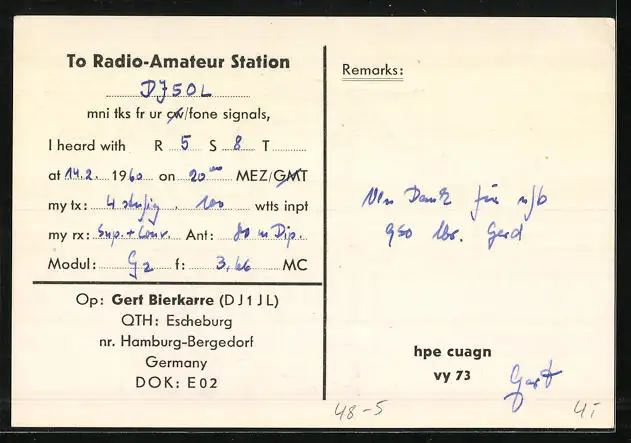 To Radio-Amateur Station
DJ5OL
mni tks fr ur cw/fone signals,
I heard with R 5 S 8 T
at 14.2. 1960 on 20 MEZ/GMT
my tx: 4 stufig . 100 wtts inpt
my rx: Sup. + Conv. Ant: 80 m Dip.
Modul: G2 f: 3,66 MC
Op: Gert Bierkarre (DJ1JL)
QTH: Escheburg
nr. Hamburg-Bergedorf
Germany
DOK: E02
Remarks:
Dank für
QSO lbr. Gerd
hpe cuagn
vy 73
Gert
48-5